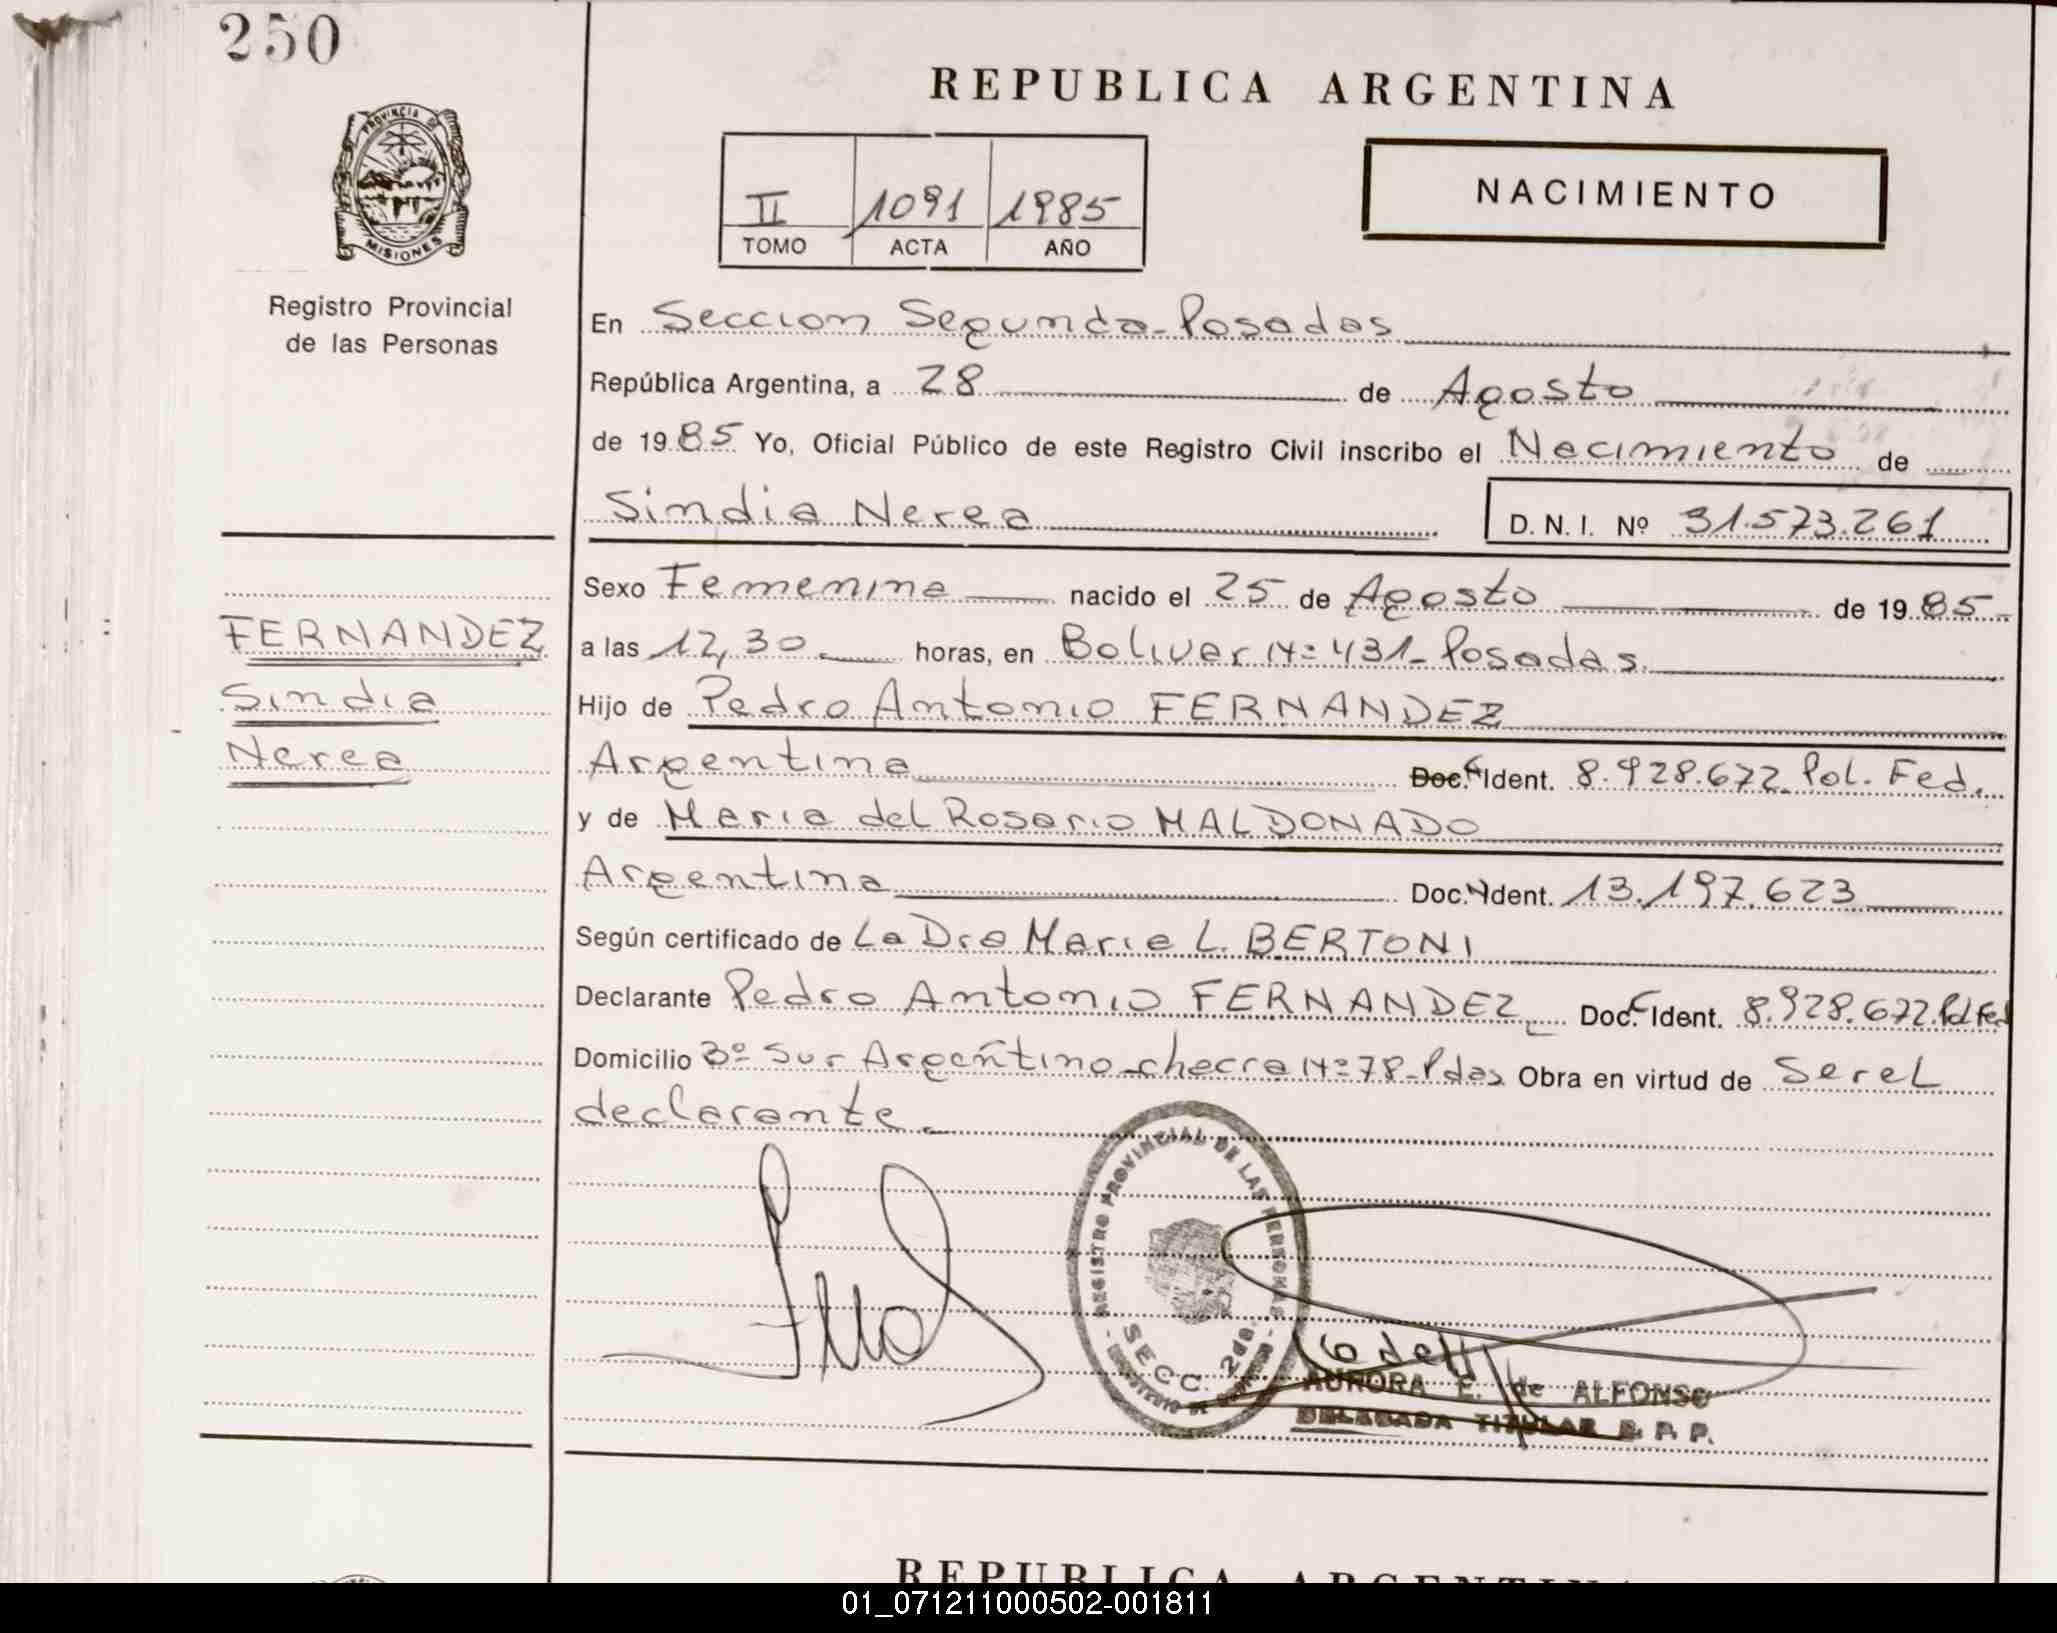 250
REPUBLICA ARGENTINA
PROVINCIA DE
MISIONES
Registro Provincial
de las Personas
II 1091 1985
TOMO ACTA AÑO
NACIMIENTO
En Seccion Segunda - Posadas
República Argentina, a 28 de Agosto
de 1985 Yo, Oficial Público de este Registro Civil inscribo el Nacimiento de
Sindia Nerea D. N. I. Nº 31.573.261
Sexo Femenina nacido el 25 de Agosto de 1985-
a las 12,30 horas, en Bolivar Nº 431- Posadas.
Hijo de Pedro Antonio FERNANDEZ
Argentina Doc. C Ident. 8.928.672 Pol. Fed.
y de Maria del Rosario MALDONADO
Argentina Doc. N Ident. 13.197.623
Según certificado de La Dra Maria L. BERTONI
Declarante Pedro Antonio FERNANDEZ Doc. C Ident. 8.928.672. Pol Fed
Domicilio 3º Sur Argentino - chacra Nº 78 - Pdas Obra en virtud de Ser el
declarante.-
FERNANDEZ
Sindia
Nerea
REGISTRO PROVINCIAL DE LAS PERSONAS
SECC. 2da.
AURORA E. de ALFONSO
DELEGADA TITULAR R. P. P.
REPUBLICA ARGENTINA
01_071211000502-001811